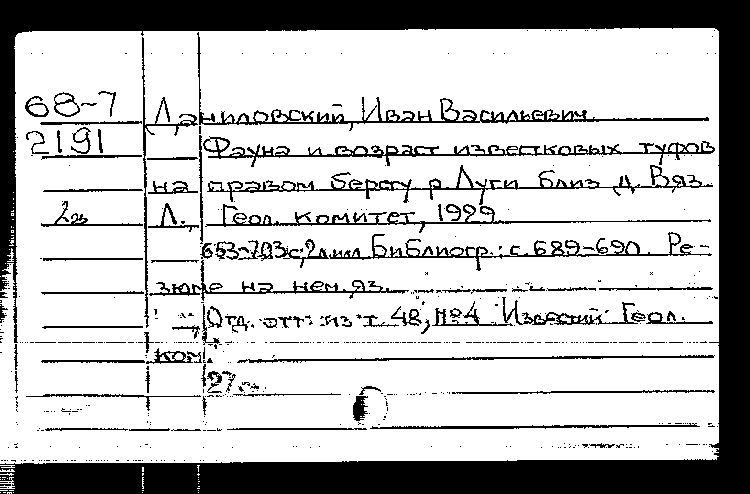 68-7
2191
Даниловский, Иван Васильевич.
Фауна и возраст известковых туфов
на правом берегу р Луги близ д. Вяз.
Л., Геол. комитет, 1929
653-703 с; 2 л.илл. Библиогр.: с. 689-690. Ре-
зюме на нем. яз.
Отд. отт. из т. 48, №4 Известий Геол.
ком.
27 см.